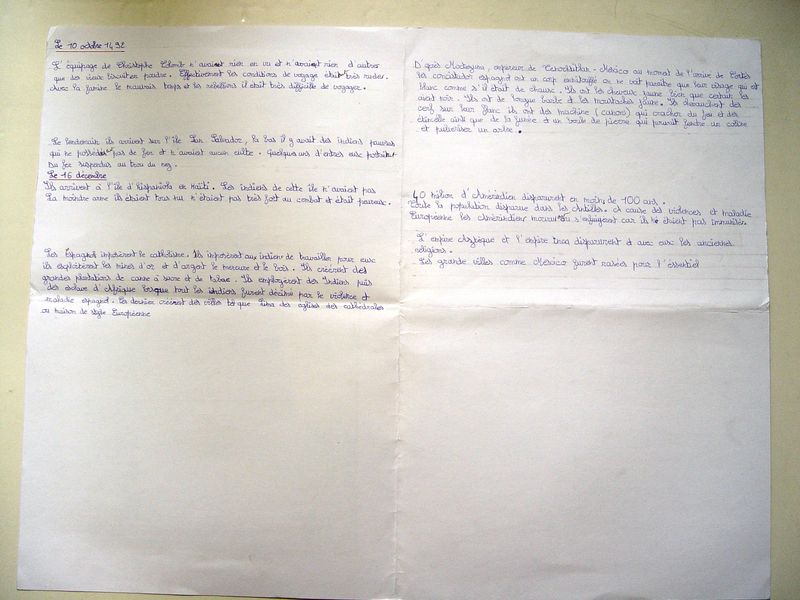 Le 10 octobre 1492
L'équipage de Christophe Colomb n'avaient rien en vu et n'avaient rien d'autres
que des vieux biscuit en poudre. Effectivement les conditions de voyage était très rudes.
Avec la famine le mauvais temps et les rebellions il était très difficile de voyager.
Le lendemain ils arrivent sur l'île San Salvador, la bas il y avait des indiens pauvres
qui ne possédais pas de fer et n'avaient aucun culte. Quelques uns d'entres eux portaient
du fer suspendus au bou du nez.
Le 16 décembre
Ils arrivent à l'île d'hispaniola en Haïti. Les indiens de cette île n'avaient pas
la moindre arme ils étaient tous nu n'étaient pas très fort au combat et était peureux.
Les Espagnol imposèrent le catholisme. Ils imposèrent aux indien de travailler pour eux
ils exploitèrent les mines d'or et d'argent le mercure et le bois. Ils créèrent des
grandes plantations de canne à sucre et de tabac. Ils employèrent des Indiens puis
des esclave d'Afrique lorsque tout les indiens furent décimé par la violence et
maladie espagnol. Ils dernier créèrent des villes tel que Lima des églises des cathédrales
ou maison de style Européenne
D'après Moctezuma, empereur de Tenochtitlan-Mexico au moment de l'arrivé de Cortès
les conquistador espagnol ont un corp emitouflé on ne voit paraître que leur visage qui est
blanc comme s'il était de chaux. Ils ont les cheveux jaune bien que certain les
aient noir. Ils ont de longue barbe et les moustaches jaune. Ils chevauchent des
cerf sur leur flanc ils ont des machine (canons) qui cracher du feu et des
étincelle ainsi que de la fumée et un boule de pierre qui pouvait fendre un colline
et pulvériser un arbre.
40 million d'Amérindien disparurent en moins de 100 ans.
Toute la population disparue dans les Antilles. A cause des violences et maladie
Européenne les Amérindiens mouru ou s'enfuyaient car ils n'étaient pas immunisés.
L'empire Aztèque et l'empire Inca disparurent et avec eux les anciennes
religions.
Les grande villes comme Mexico furent rasées pour l'essentiel